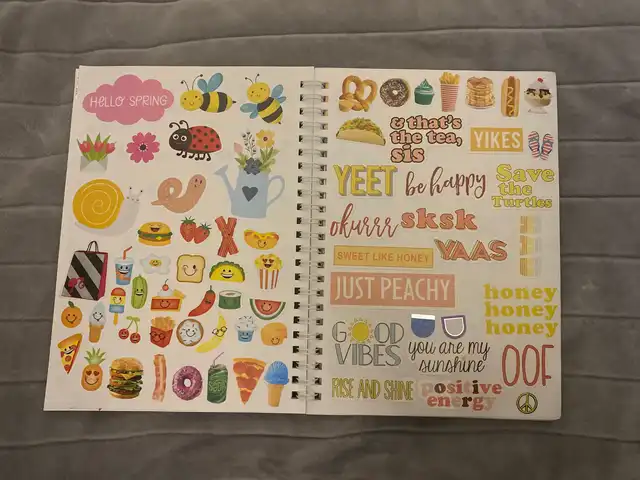 HELLO SPRING
& that's
the tea,
sis
YIKES
YEET
be happy
Save
the
Turtles
okurrr
sksk
SWEET LIKE HONEY
YAAS
JUST PEACHY
honey
honey
honey
GOOD
VIBES
you are my
sunshine
OOF
RISE AND SHINE
positive
energy